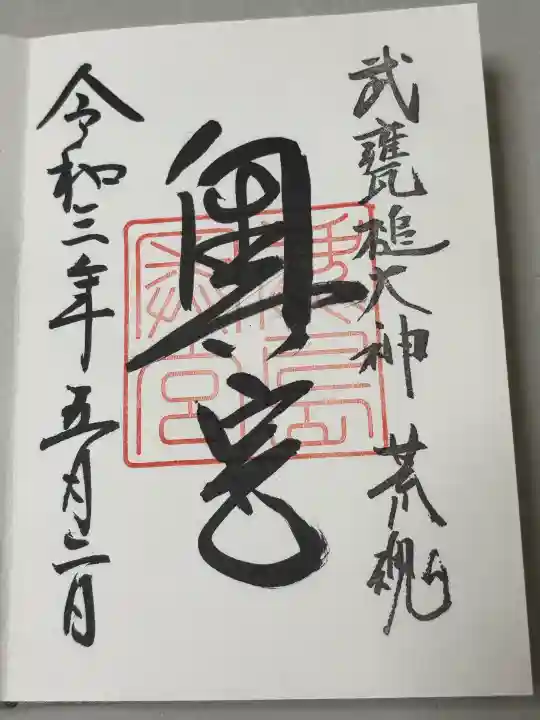 武甕槌大神 荒魂
奥宮
鹿島奥宮
令和三年五月二日